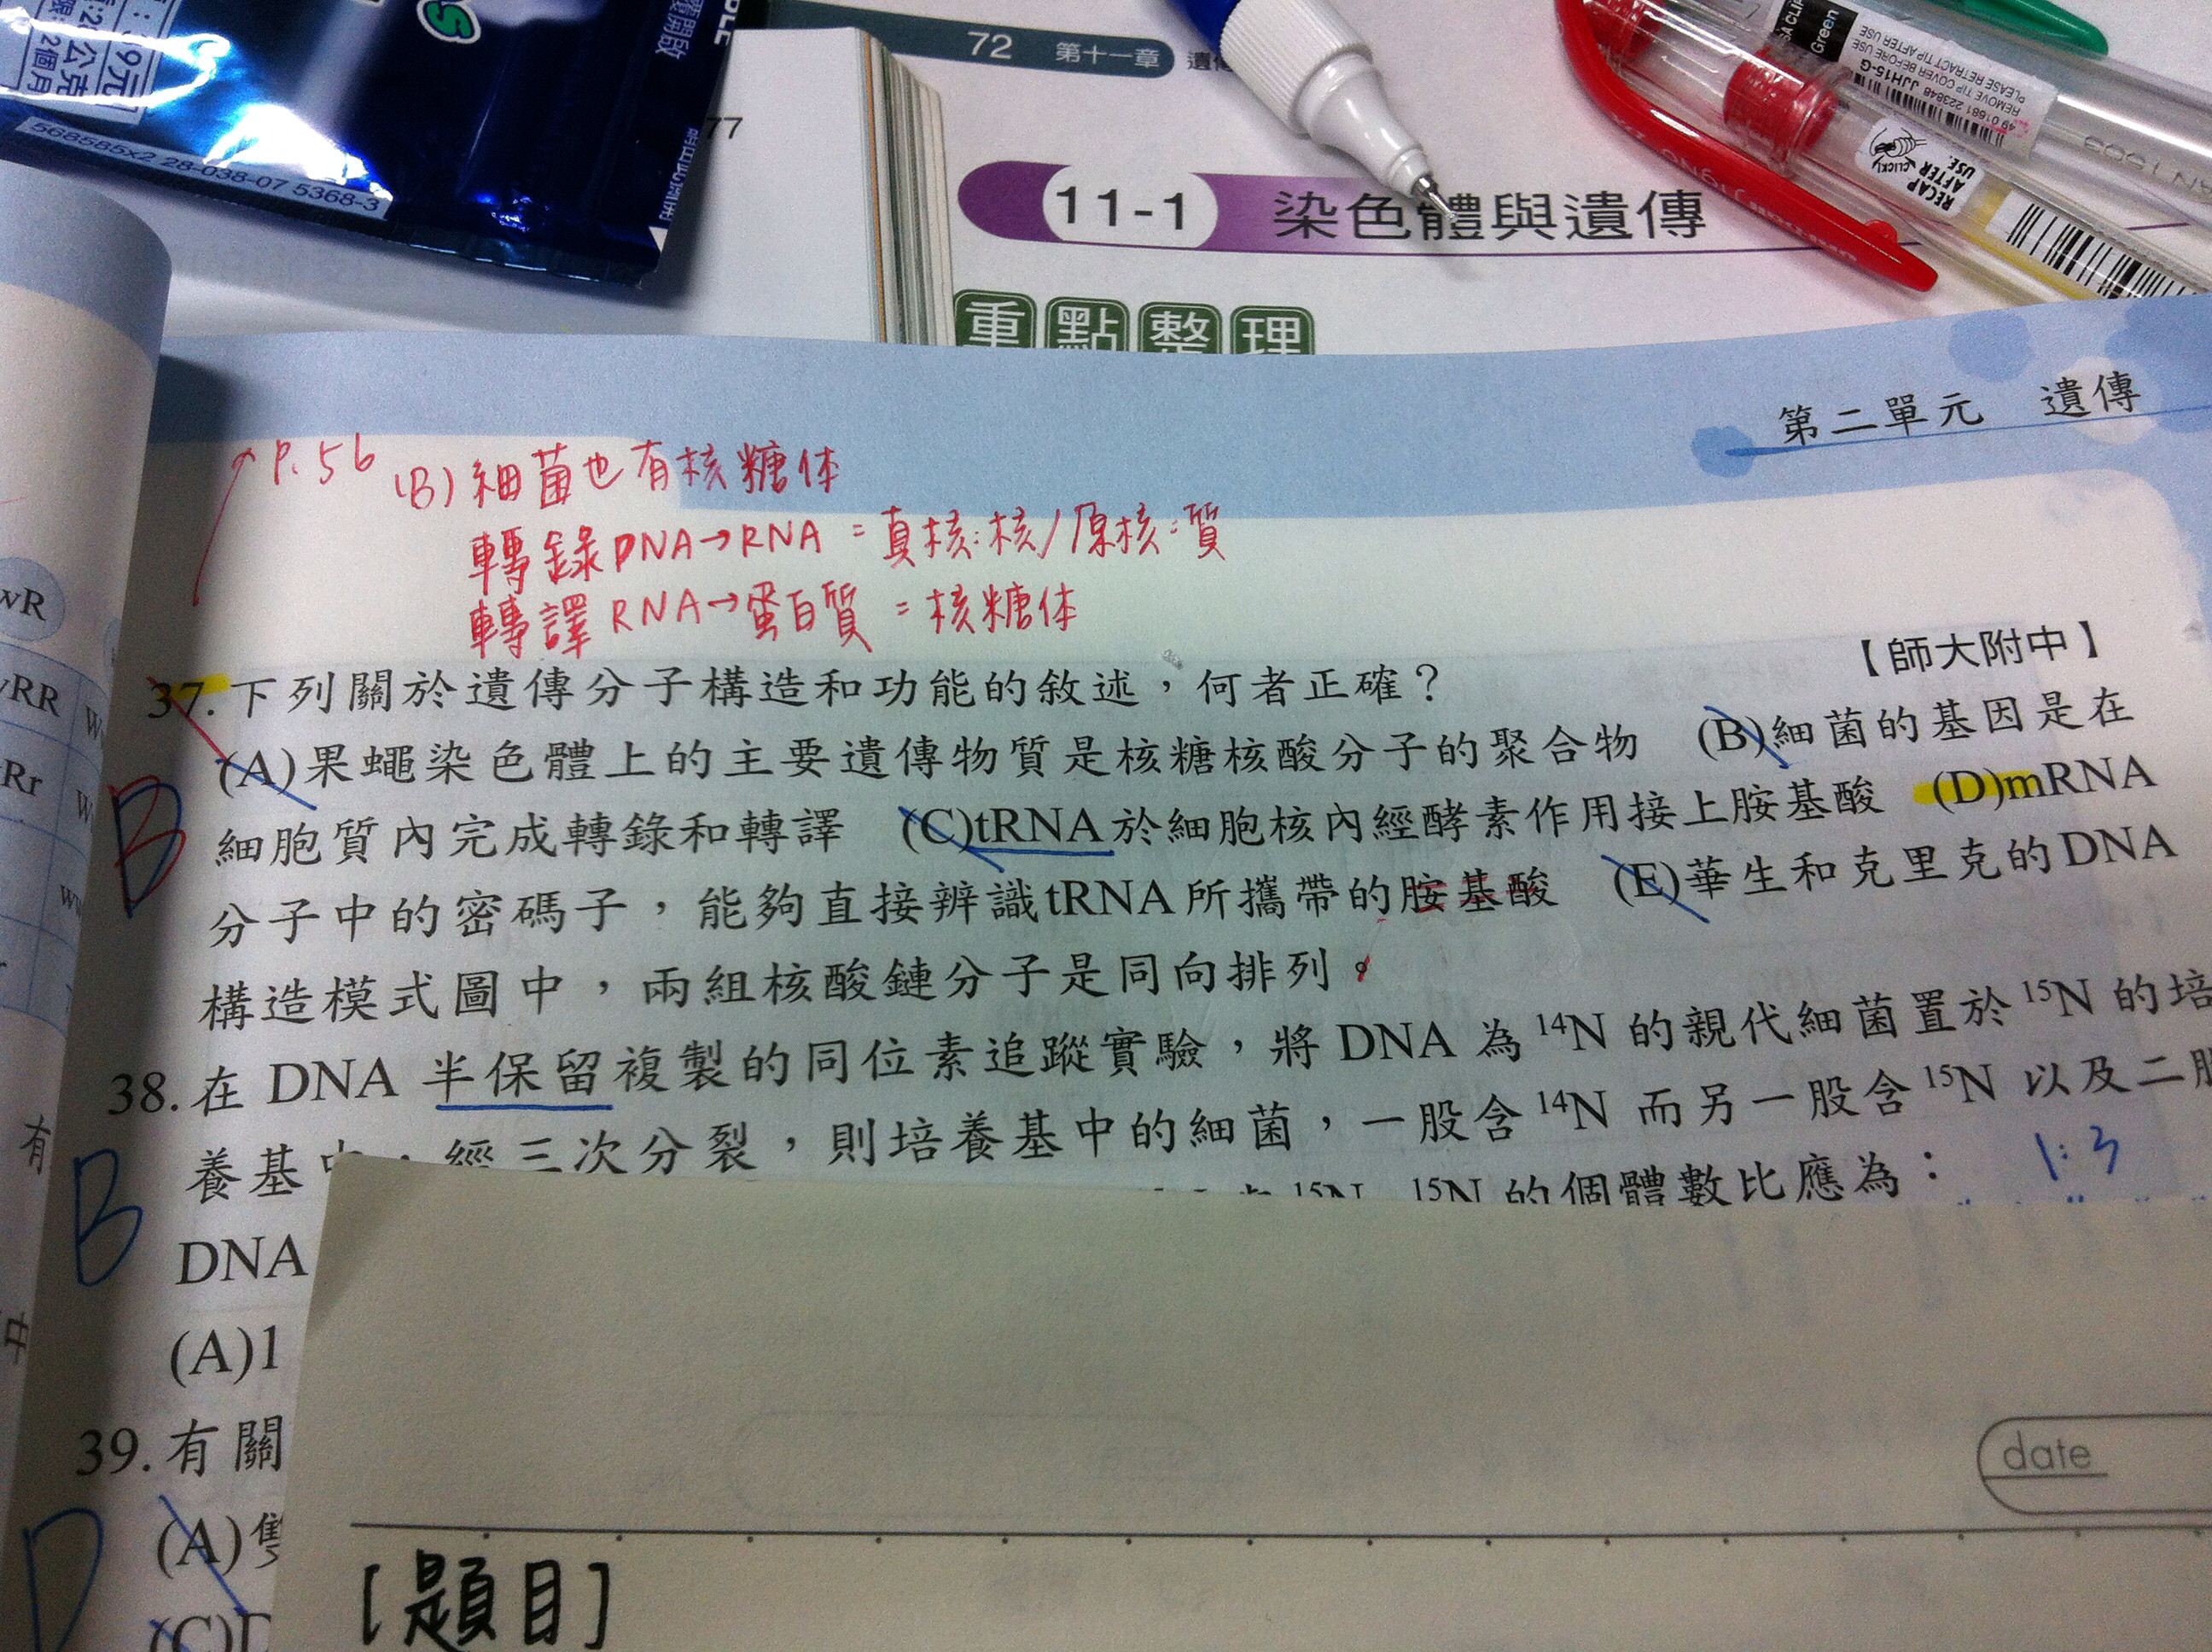 9元
公克
2個月
568585x2 28-038-07 5368-3
77
72 第十一章 遺傳
11-1 染色體與遺傳
重點整理
Green
REMOVE TIP COVER BEFORE USE
PLEASE RETRACT TIP AFTER USE
JJH15-G
49 01681 223848
RECAP AFTER USE.
CLICK!
第二單元 遺傳
P.56
(B)細菌也有核糖体
轉錄DNA→RNA=真核:核/原核:質
轉譯RNA→蛋白質=核糖体
【師大附中】
37.下列關於遺傳分子構造和功能的敘述，何者正確？
(A)果蠅染色體上的主要遺傳物質是核糖核酸分子的聚合物 (B)細菌的基因是在
細胞質內完成轉錄和轉譯 (C)tRNA於細胞核內經酵素作用接上胺基酸 (D)mRNA
分子中的密碼子，能夠直接辨識tRNA所攜帶的胺基酸 (E)華生和克里克的DNA
構造模式圖中，兩組核酸鏈分子是同向排列。
B
38.在DNA半保留複製的同位素追蹤實驗，將DNA為¹⁴N的親代細菌置於¹⁵N的培
養基中，經三次分裂，則培養基中的細菌，一股含¹⁴N而另一股含¹⁵N以及二股
DNA
¹⁵N ¹⁵N的個體數比應為：
1:3
B
(A)1
39.有關
(A)
(C)D
D
wR
RR
Rr
有
中
date
[題目]